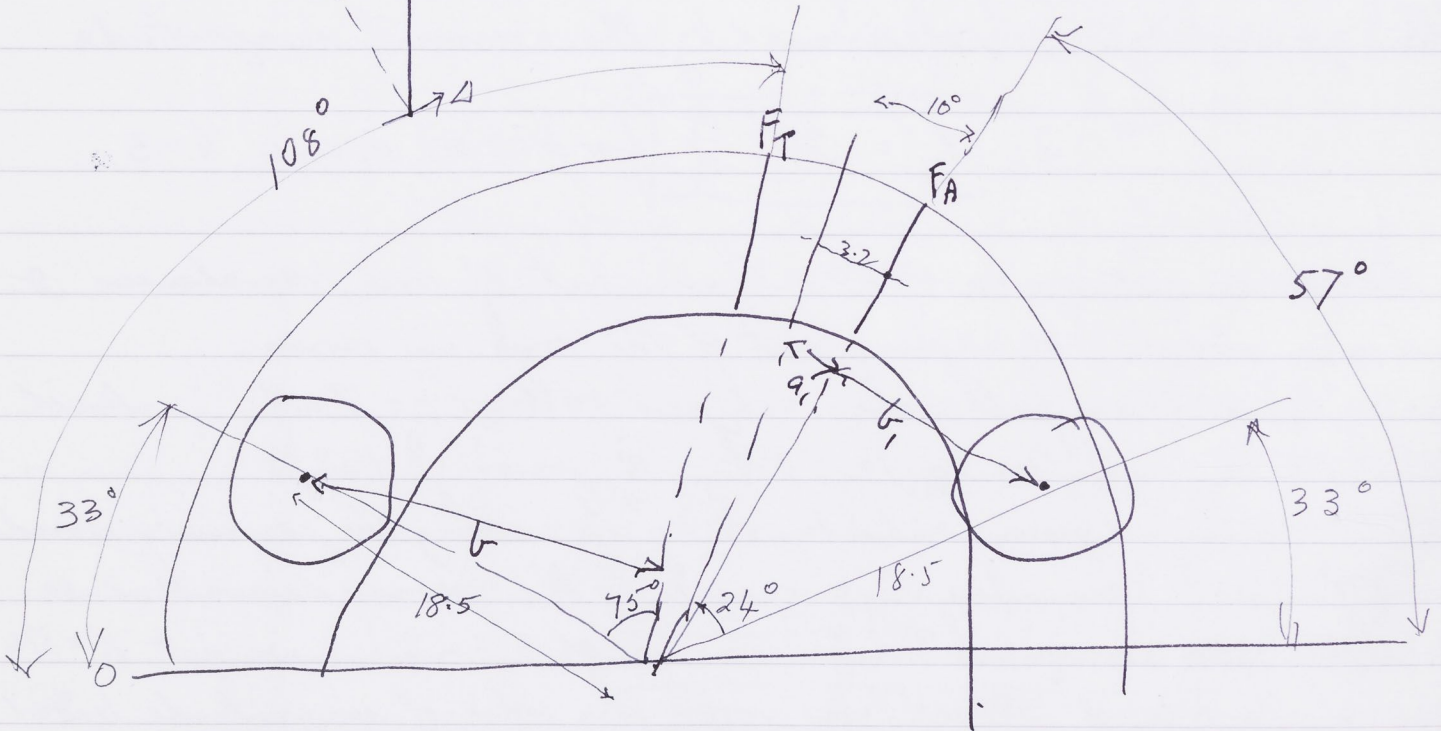 108°
Δ
F_T
10°
F_A
3.2
57°
a₁
b₁
33°
b
18.5
75°
24°
18.5
33°
0